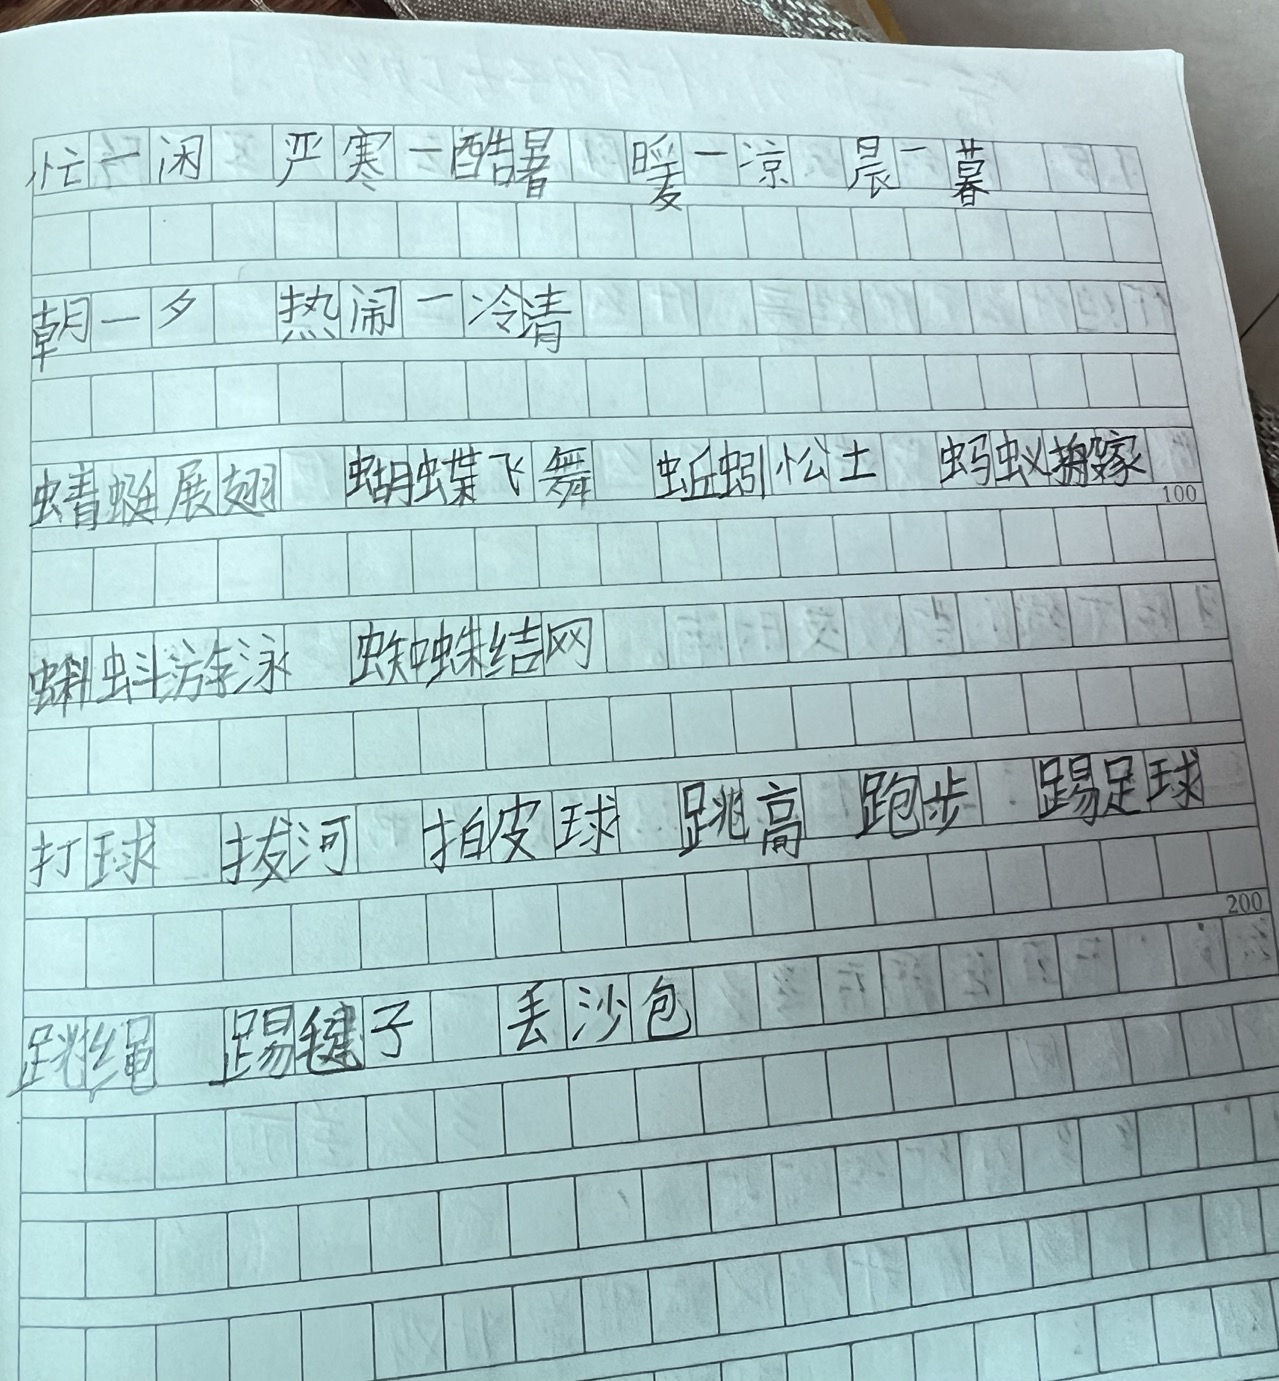 忙一闲 严寒一酷暑 暖一凉 晨一暮
朝一夕 热闹一冷清
蜻蜓展翅 蝴蝶飞舞 蚯蚓松土 蚂蚁搬家
100
蝌蚪游泳 蜘蛛结网
打球 拔河 拍皮球 跳高 跑步 踢足球
200
跳绳 踢毽子 丢沙包